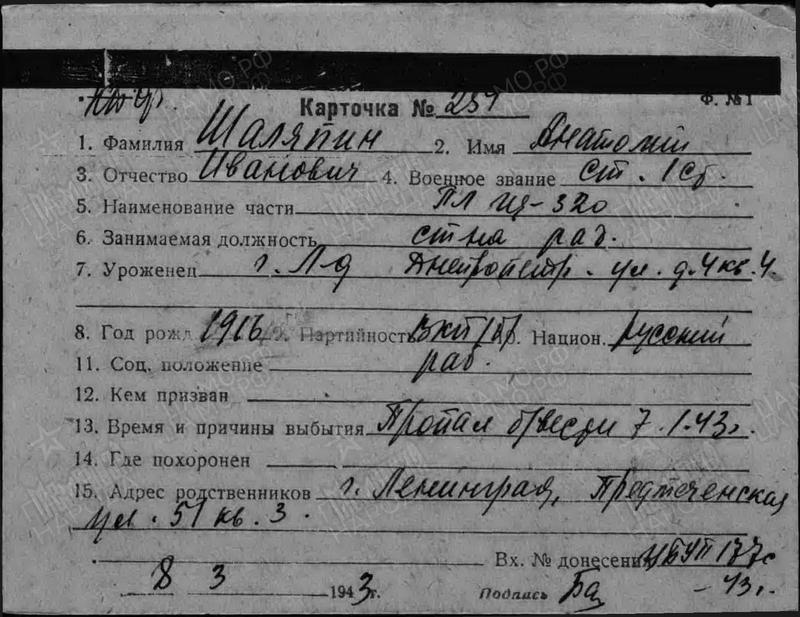 Карточка № 237 Ф. №1
1. Фамилия Шаляпин 2. Имя Анатолий
3. Отчество Иванович 4. Военное звание ст. 1 ст.
5. Наименование части ПЛ Щ-320
6. Занимаемая должность ст-на рад.
7. Уроженец г. Л-д Днепропетр. ул. д. 4 кв. 4.
8. Год рожд 1916 9. Партийность ВКП/б/ 10. Национ. русский
11. Соц. положение раб.
12. Кем призван
13. Время и причины выбытия Пропал б/вести 7.1.43г.
14. Где похоронен
15. Адрес родственников г. Ленинград, Предтеченская
ул. 51 кв. 3.
Вх. № донесения 177с
8 3 1943 г. Подпись -43г.
ЦАМО.РФ